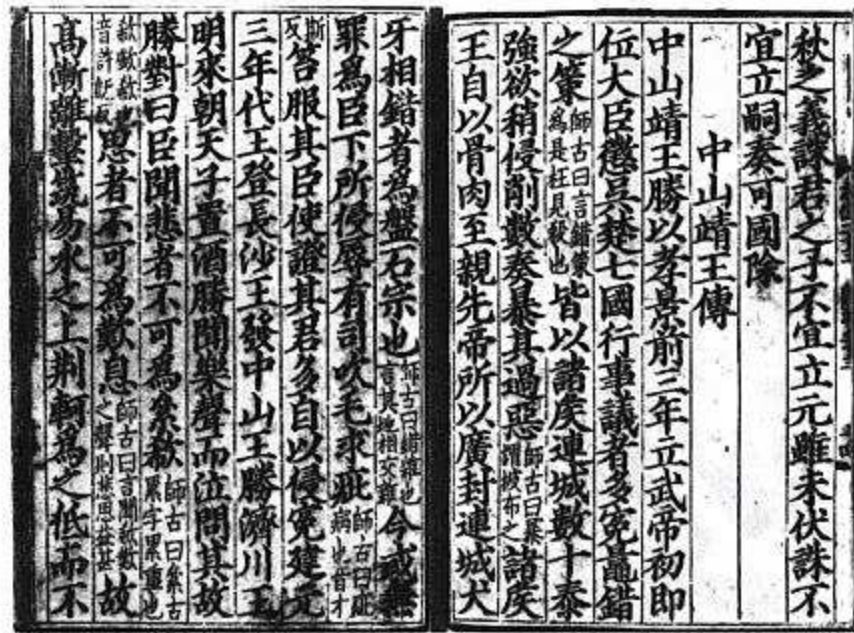 秋之義誅君之子不宜立元雖未伏誅不
宜立嗣奏可國除
中山靖王傳
中山靖王勝以孝景前三年立武帝初即
位大臣懲吳楚七國行事議者多冤鼂錯
之策師古曰言錯策為是枉見殺也皆以諸侯連城數十泰
強欲稍侵削數奏暴其過惡師古曰暴謂披布之諸侯
王自以骨肉至親先帝所以廣封連城犬
牙相錯者為盤石宗也師古曰錯雜也言其地相交雜今或無
罪為臣下所侵辱有司吹毛求疵師古曰疵病也音才
斯反笞服其臣使證其君多自以侵冤建元
三年代王登長沙王發中山王勝濟川王
明來朝天子置酒勝聞樂聲而泣問其故
勝對曰臣聞悲者不可為絫欷師古曰絫古累字累重也
欷歔欷也音許旣反思者不可為歎息師古曰言聞欷歔之聲則悲思益甚故
高漸離擊筑易水之上荆軻為之低而不